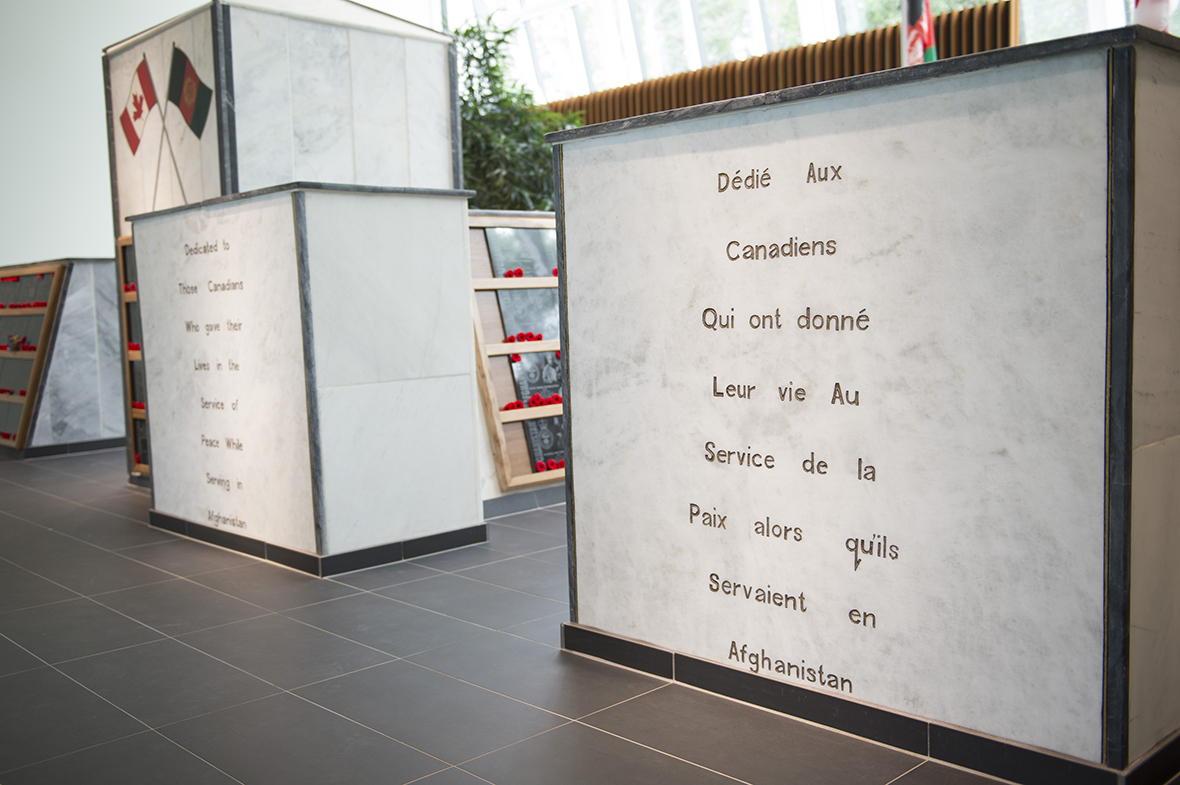 Dedicated to
Those Canadians
Who gave their
Lives in the
Service of
Peace While
Serving in
Afghanistan
Dédié Aux
Canadiens
Qui ont donné
Leur vie Au
Service de la
Paix alors qu'ils
Servaient en
Afghanistan